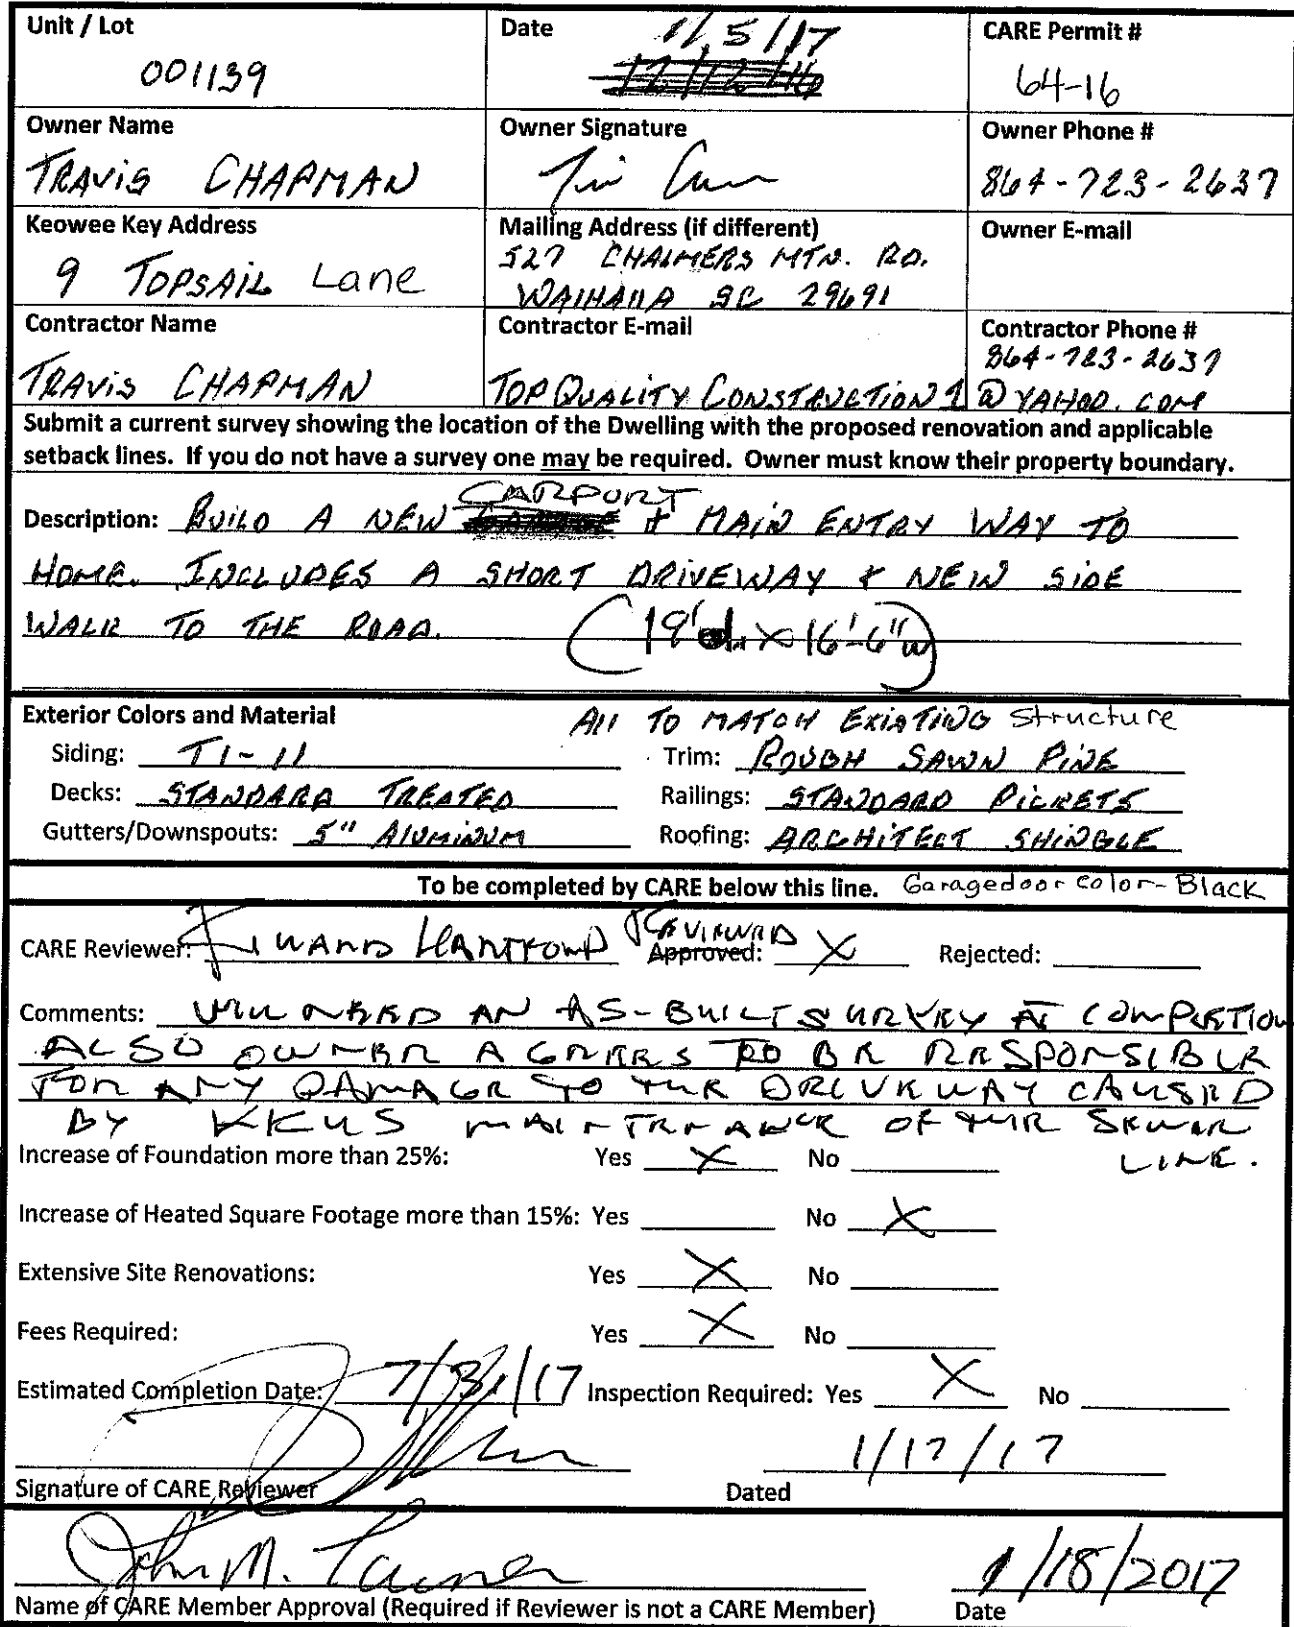 Unit / Lot
001139
Date
1/5/17
12/12/16
CARE Permit #
64-16
Owner Name
TRAVIS CHAPMAN
Owner Signature
Owner Phone #
864-723-2637
Keowee Key Address
9 TOPSAIL Lane
Mailing Address (if different)
527 CHALMERS MTN. RD.
WAlHAllA SC 29691
Owner E-mail
Contractor Name
TRAVIS CHAPMAN
Contractor E-mail
TOP QUALITY CONSTRUCTION 1 @ YAHOO. COM
Contractor Phone #
864-723-2637
Submit a current survey showing the location of the Dwelling with the proposed renovation and applicable
setback lines. If you do not have a survey one may be required. Owner must know their property boundary.
CARPORT
Description: BUILD A NEW GARAGE & MAIN ENTRY WAY TO
HOME. INCLUDES A SHORT DRIVEWAY & NEW SIDE
WALK TO THE ROAD. (19'd. x 16'-6"w)
Exterior Colors and Material All TO MATCH EXISTING Structure
Siding: T1-11 Trim: ROUGH SAWN PINE
Decks: STANDARD TREATED Railings: STANDARD PICKETS
Gutters/Downspouts: 5" AlUMINUM Roofing: ARCHITECT SHINGLE
To be completed by CARE below this line. Garagedoor color-Black
REVIEWED
CARE Reviewer: HARTFORD Approved: X Rejected:
Comments: WILL NEED AN AS-BUILT SURVEY AT COMPLETION
ALSO OWNER AGREES TO BE RESPONSIBLE
FOR ANY DAMAGE TO THE DRIVEWAY CAUSED
BY KKUS MAINTENANCE OF THE SEWER
LINE.
Increase of Foundation more than 25%: Yes X No
Increase of Heated Square Footage more than 15%: Yes No X
Extensive Site Renovations: Yes X No
Fees Required: Yes X No
Estimated Completion Date: 7/31/17 Inspection Required: Yes X No
1/17/17
Signature of CARE Reviewer Dated
John M. 1/18/2017
Name of CARE Member Approval (Required if Reviewer is not a CARE Member) Date